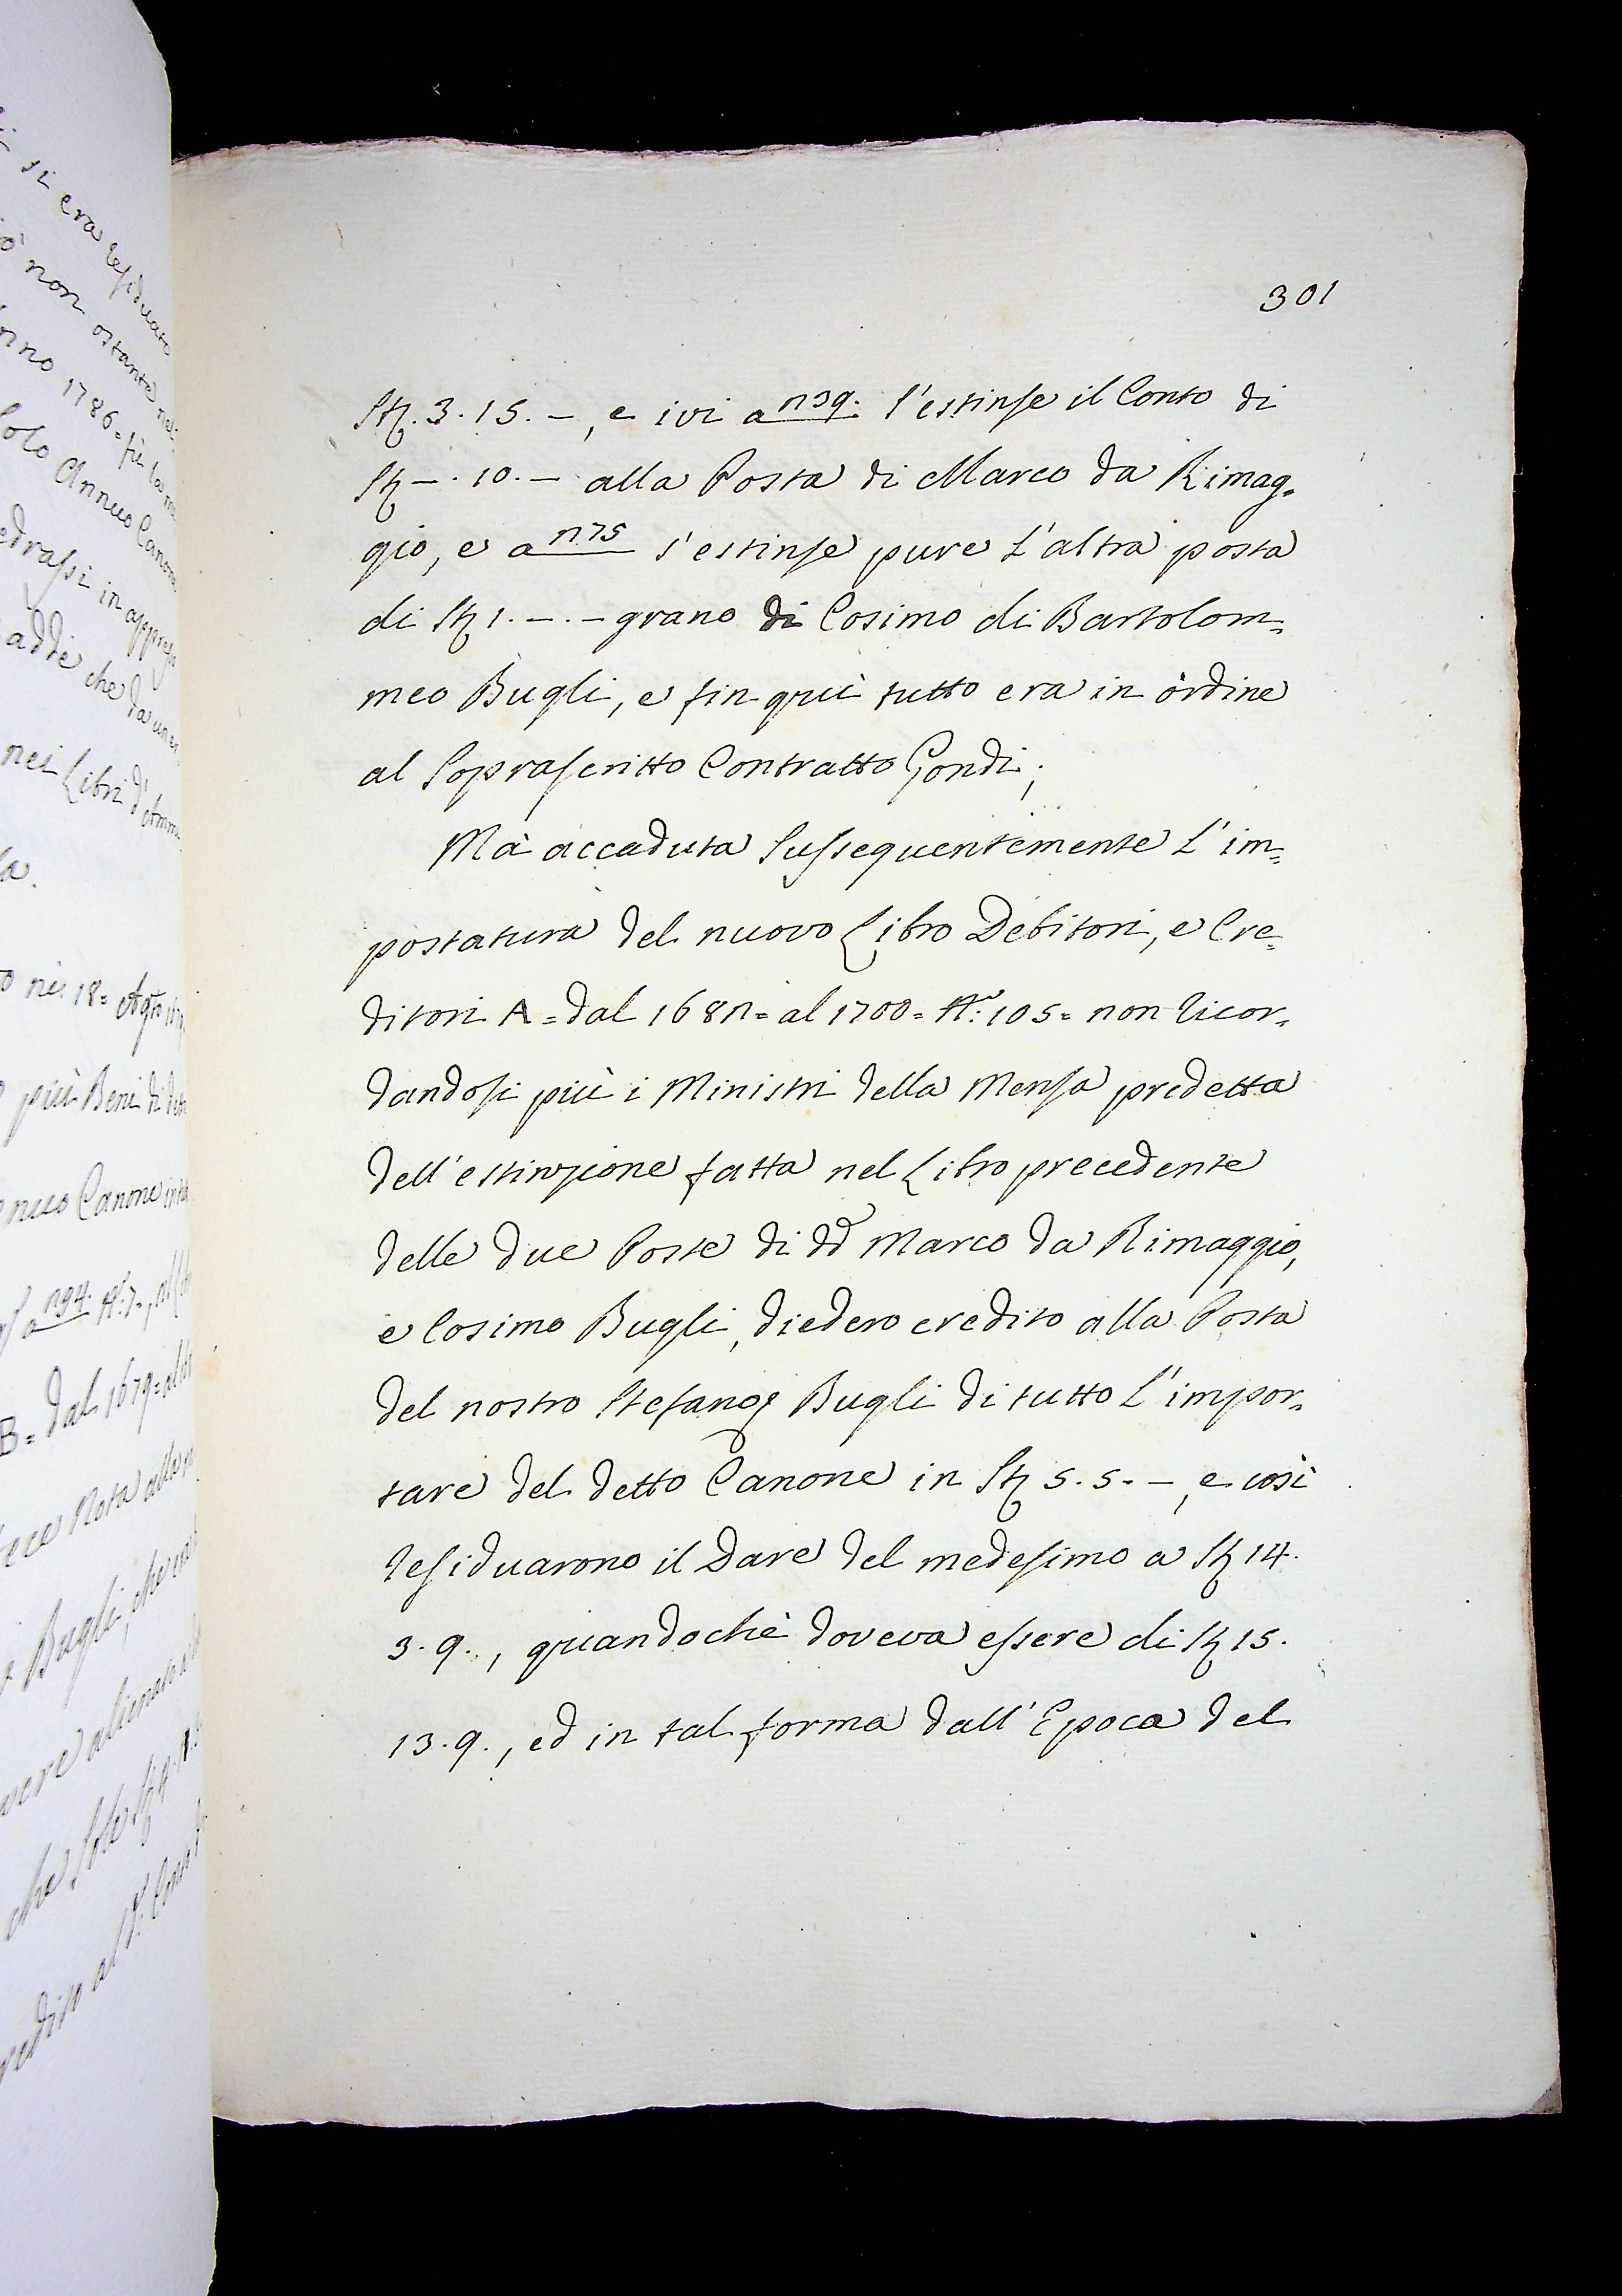 301
Stȷ. 3. 15. –, e ivi a n39. s'estinse il Conto di
St –. 10. – alla Posta di Marco da Rimag=
gio, e a n75 s'estinse pure l'altra posta
di St 1. –. – grano di Cosimo di Bartolom=
meo Bugli, e fin quì tutto era in òrdine
al Soprascritto Contratto Gondi;
Mà accaduta Sussequentemente l'im=
postatura del nuovo Libro Debitori, e Cre=
ditori A = dal 168n = al 1700 = 105 = non ricor=
dandosi più i Ministri della Mensa predetta
dell'estinzione fatta nel Libro precedente
delle due Poste di dd Marco da Rimaggio,
e Cosimo Bugli, diedero credito alla Posta
del nostro Stefano Bugli di tutto l'impor=
tare del detto Canone in St 5. 5. –, e così
residuarono il Dare del medesimo a St 14.
3. 9., quandochè doveva essere di St 15.
13. 9., ed in tal forma dall'Epoca del
si era residuato
non ostante
1786 = fù
solo Annuo Canone
in appresso
addie che da
nei Libri d'
18 =
più Beni di
Canone
n94.
B = dal 1679 = al
Nota alla
Bugli, che
alienato
che sole St 9.